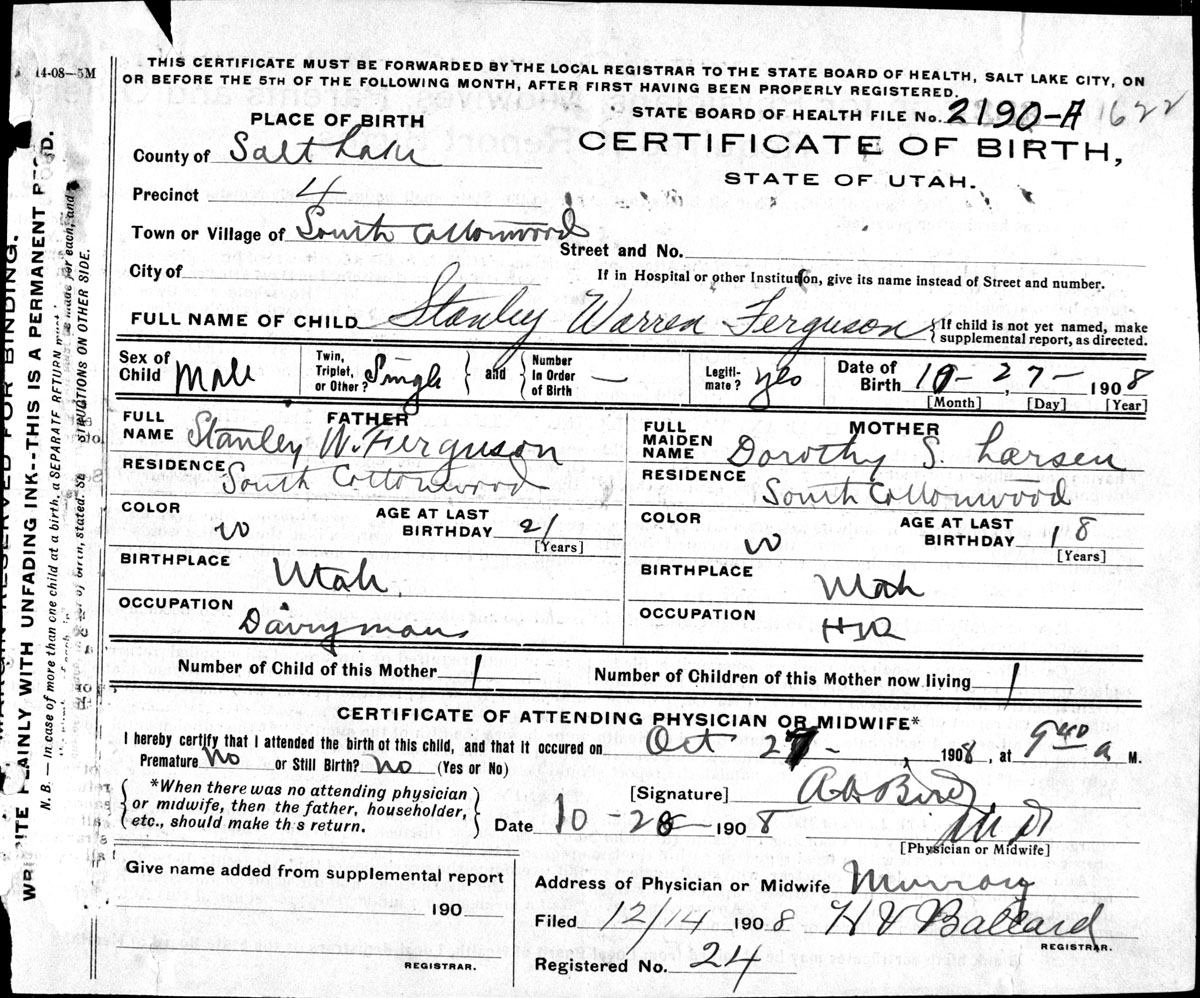 14-08—5M
THIS CERTIFICATE MUST BE FORWARDED BY THE LOCAL REGISTRAR TO THE STATE BOARD OF HEALTH, SALT LAKE CITY, ON
OR BEFORE THE 5TH OF THE FOLLOWING MONTH, AFTER FIRST HAVING BEEN PROPERLY REGISTERED.
STATE BOARD OF HEALTH FILE No. 2190-A 1622
PLACE OF BIRTH
CERTIFICATE OF BIRTH,
STATE OF UTAH.
County of Salt Lake
Precinct 4
Town or Village of South Cottonwood
Street and No.
City of
If in Hospital or other Institution, give its name instead of Street and number.
FULL NAME OF CHILD Stanley Warren Ferguson { If child is not yet named, make
supplemental report, as directed.
Sex of Child Male
Twin, Triplet, or Other? Single } and { Number In Order of Birth —
Legiti-mate? yes
Date of Birth 10-27-1908
[Month] [Day] [Year]
FATHER
FULL NAME Stanley W. Ferguson
RESIDENCE South Cottonwood
COLOR W
AGE AT LAST BIRTHDAY 21
[Years]
BIRTHPLACE Utah
OCCUPATION Dairyman
MOTHER
FULL MAIDEN NAME Dorothy S. Larsen
RESIDENCE South Cottonwood
COLOR W
AGE AT LAST BIRTHDAY 18
[Years]
BIRTHPLACE Utah
OCCUPATION
Number of Child of this Mother 1
Number of Children of this Mother now living 1
CERTIFICATE OF ATTENDING PHYSICIAN OR MIDWIFE*
I hereby certify that I attended the birth of this child, and that it occured on Oct 27- 1908, at 9 40 a M.
Premature No or Still Birth? No (Yes or No)
{ *When there was no attending physician
or midwife, then the father, householder,
etc., should make th s return. }
[Signature] Bird
M D
[Physician or Midwife]
Date 10-28-1908
Give name added from supplemental report
190
REGISTRAR.
Address of Physician or Midwife Murray
Filed 12/14 1908 H V Ballard
REGISTRAR.
Registered No. 24
MARGIN RESERVED FOR BINDING.
WRITE PLAINLY WITH UNFADING INK--THIS IS A PERMANENT
N. B. — In case of more than one child at a birth, a SEPARATE RETURN must be made for each, and
of birth, stated.
STRUCTIONS ON OTHER SIDE.